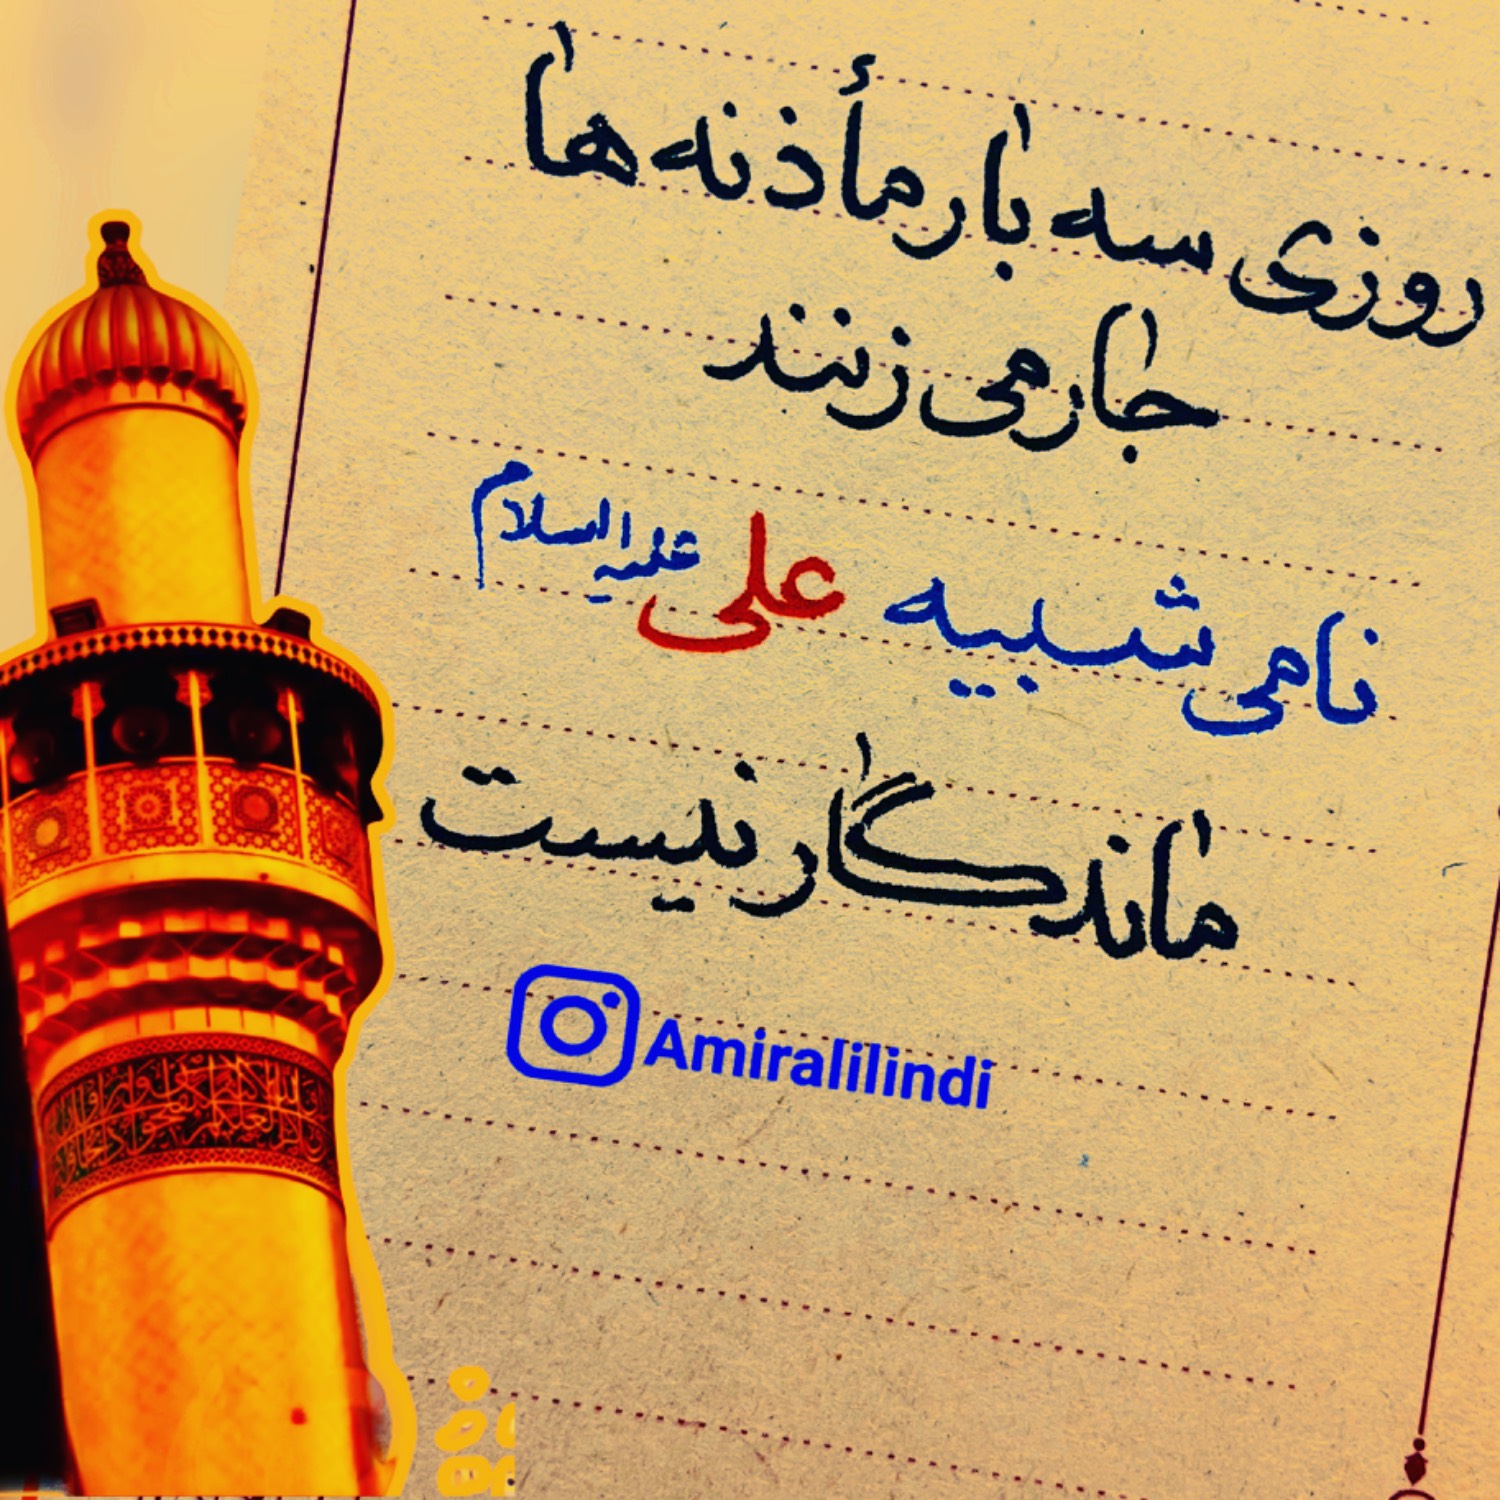 روزی سه بار مأذنه ها
جار می زنند
نامی شبیه علی علیه السلام
ماندگار نیست
Amiralilindi